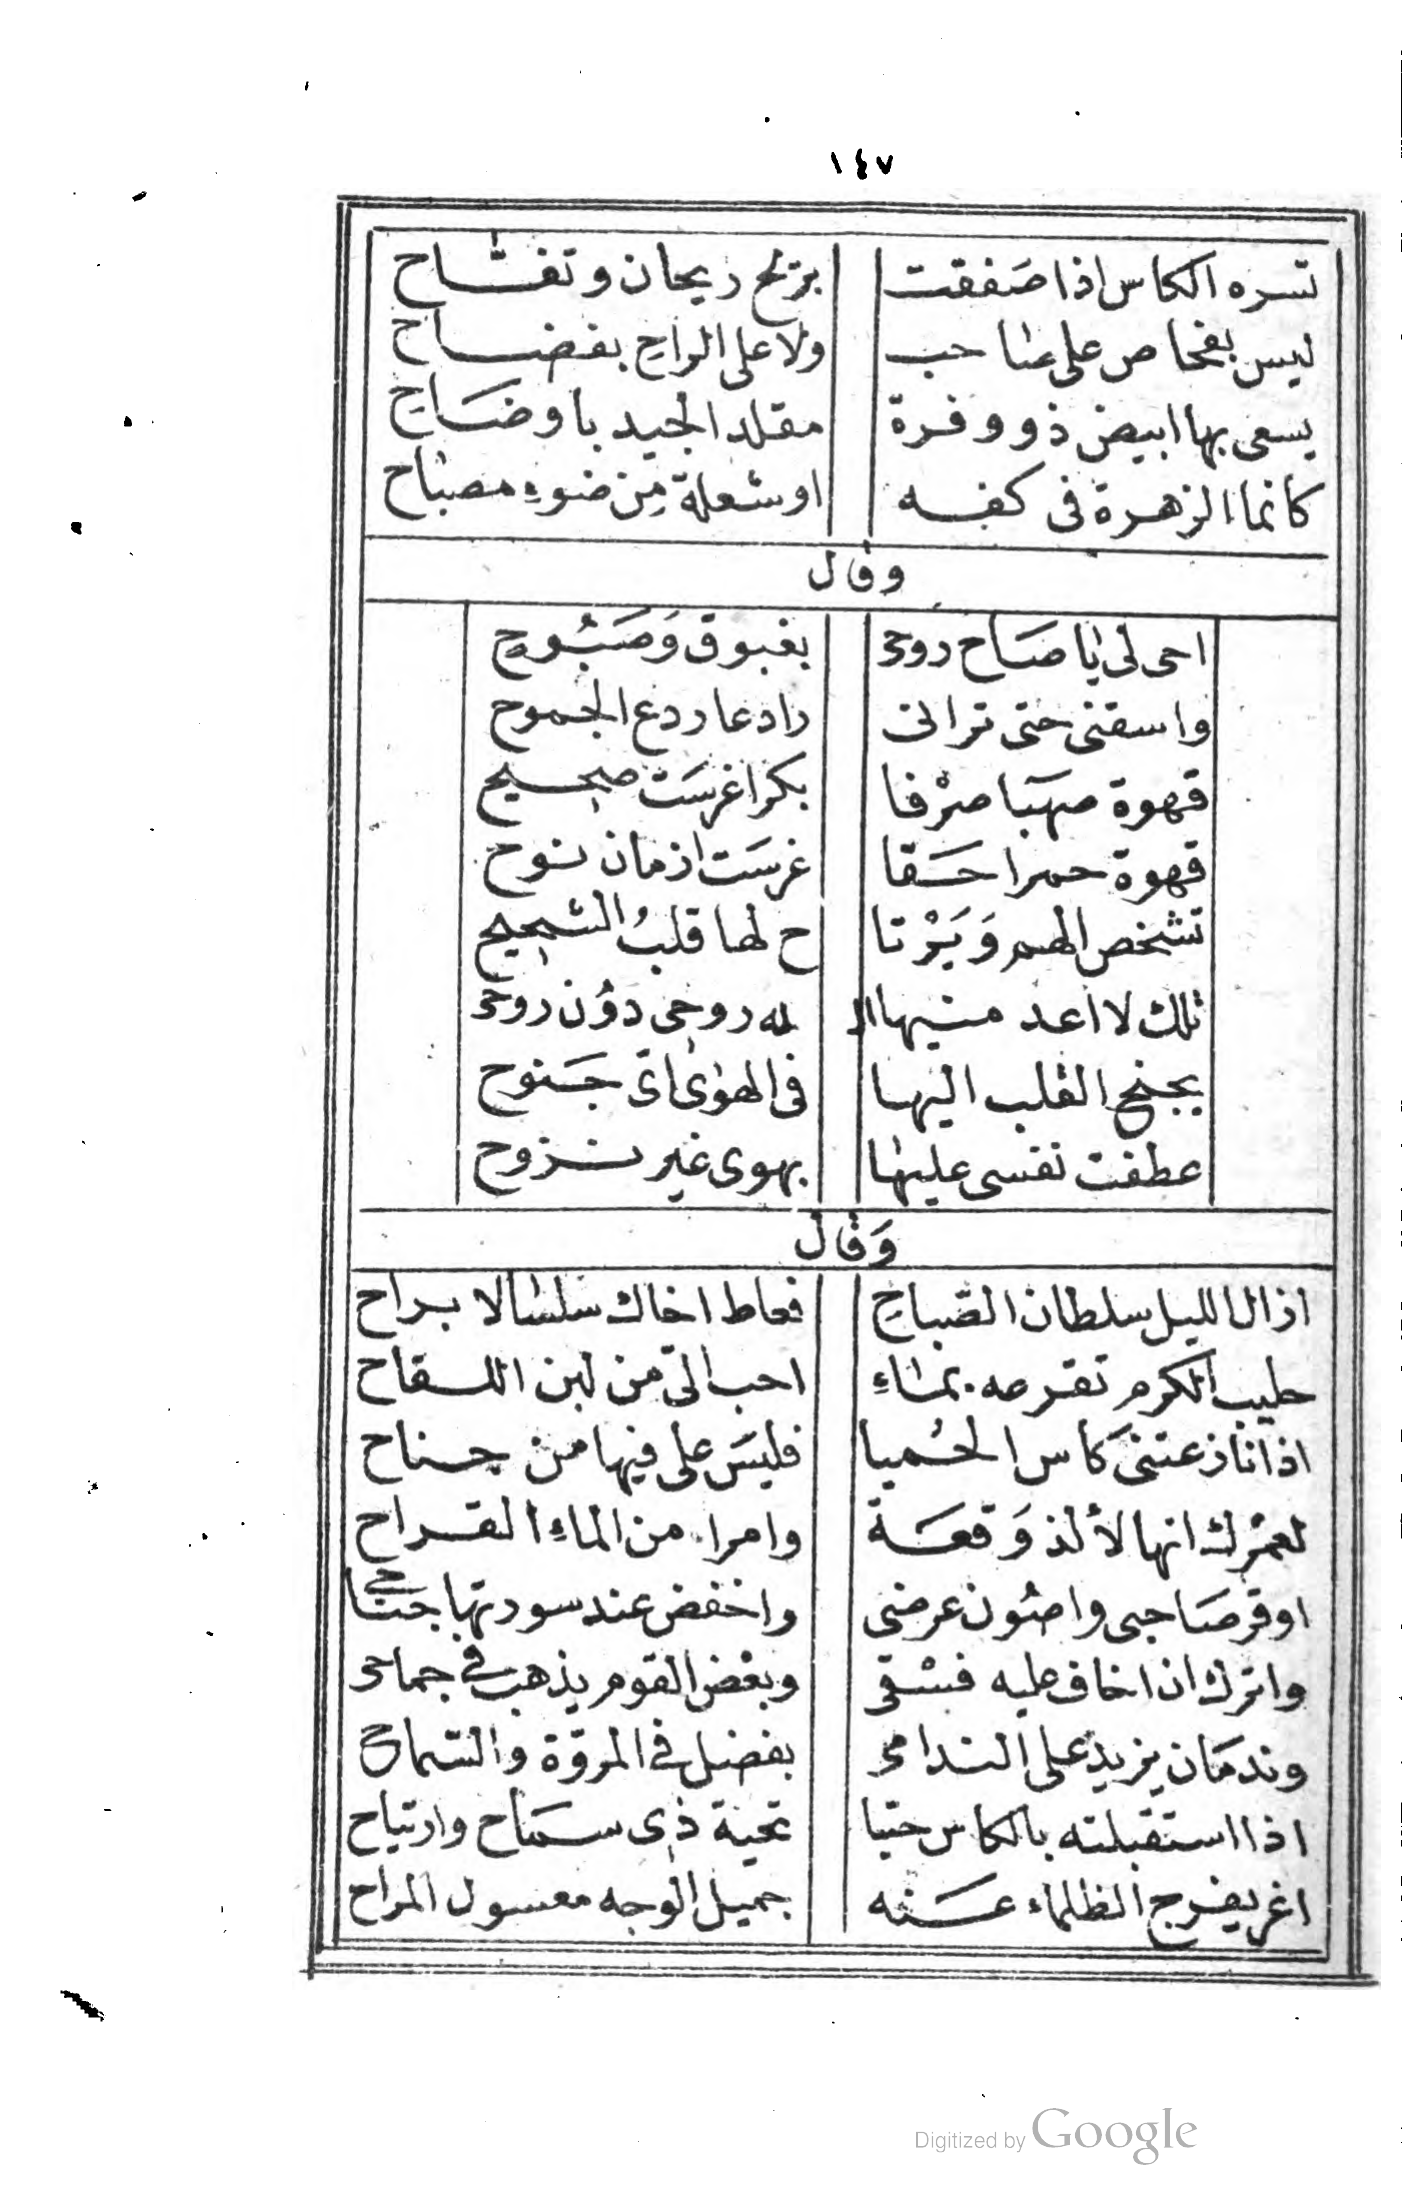 ١٤٧
تسره الكاس اذا صَفقت بريح ريحان وتفّاح
ليس بفحاص على صاحب ولا على الراحِ بفضاح
يسعى بها ابيض ذو وفرة مقلد الجيد باوضَاحِ
كانما الزهرة فى كفه او شعلة مِن ضوءِ مصباح
وقال
احى لى يا صَاح روحى بغبوق وَصَبُوحِ
واسقنى حتى ترانى رادعا ردع الجموح
قهوة صهبَا صرْفا بكرا غرسَت صحيح
قهوة حمرا حَقا غرسَت ازمان نوح
تشخص الهم وَيَرْتا ح لها قلبُ الشحيح
تلك لا اعد منيها ال له روحى دوُن روحى
يجنح القلب اليها فى الهوى اىّ جَنوح
عطفت نفسى عليها بهوى غير نزوح
وَقال
اذ ال الليل سلطان الصّباحِ فعاط اخاك سلسالا براح
حليب الكرم تقرعه بماءِ احب الىّ من لبن اللقاح
اذا نازعتنى كاس الحُميا فليسَ على فيها من جناح
لعمْرك انها لألذ وَقعَة وامرا من الماءِ القراح
اوقر صَاحبى واصُون عرضى واخفض عند سورتها جنَاحى
واترك ان اخاف عليه فسْقى وبغض القوم يذهب فى جماحى
وندمَان يزيد على الندامى بفضل فى المروّة والسّماح
اذا استقبلته بالكاس حيّا تحية ذى سمَاح وارتياح
اغر يفرج الظلماء عَنه جميل الوجه معسول المراح
Digitized by Google